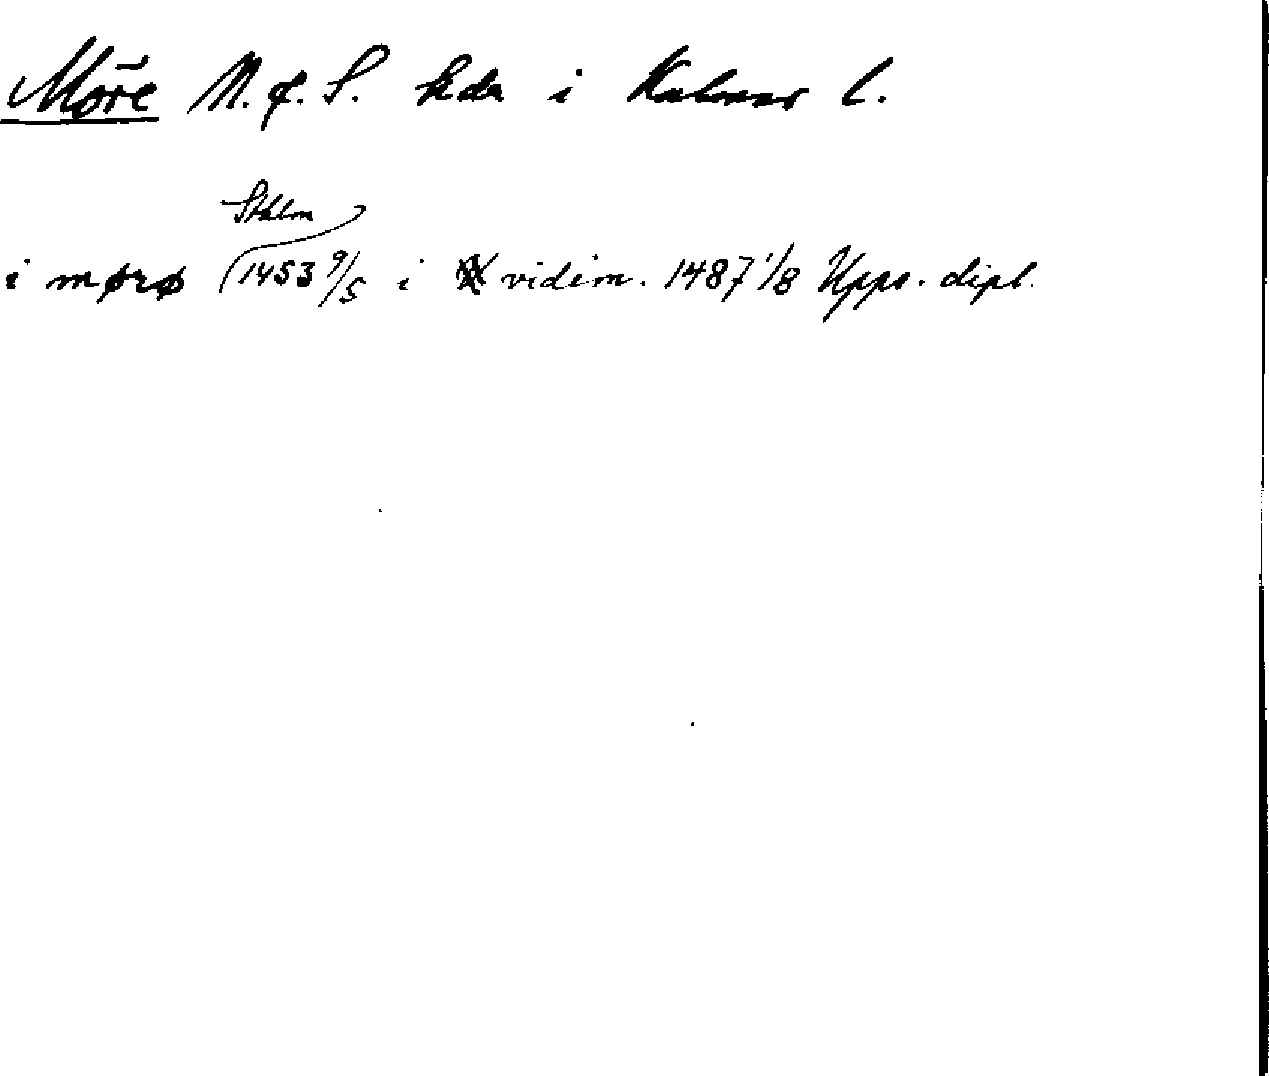 Möre N. o. S. hdr i Kalmar l.
Sthlm
i mørø (1453 9/5 i vidim. 1487 1/8 Upps. dipl.